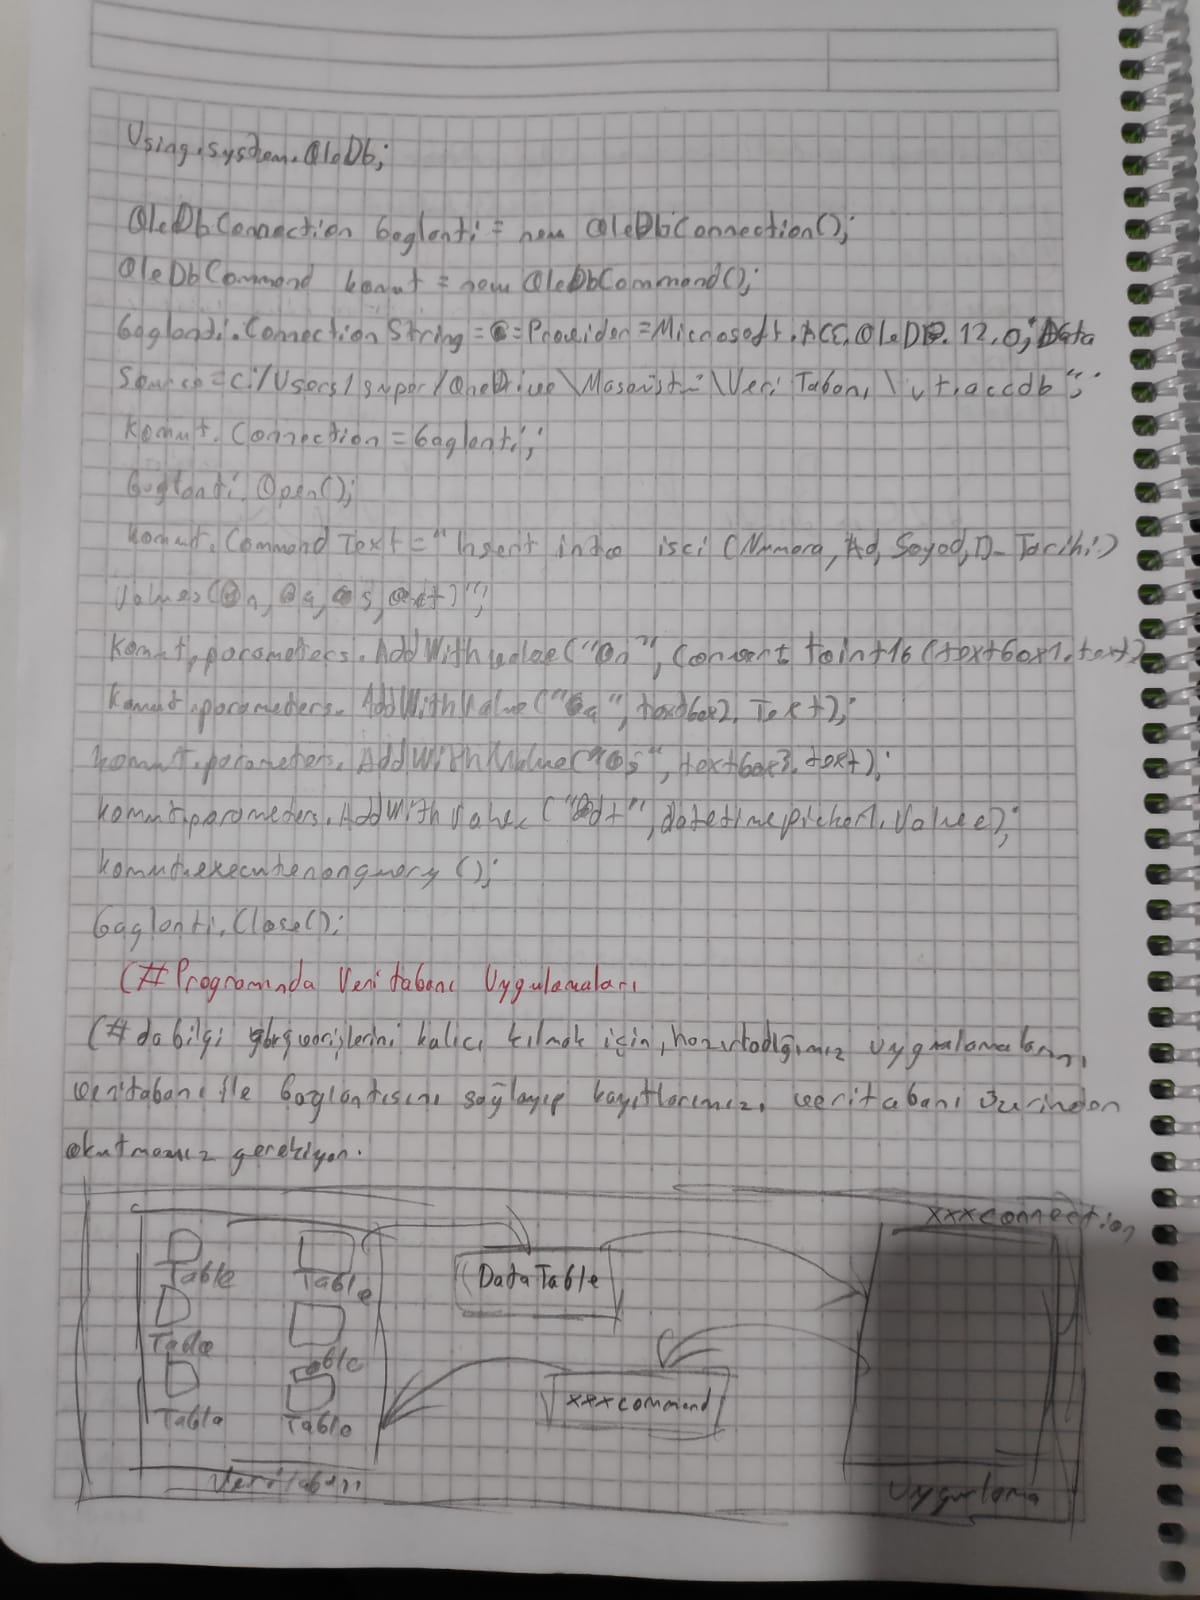 Using.system.OleDb;
OleDbConnection baglanti = new OleDbConnection();
OleDbCommand komut = new OleDbCommand();
baglanti.Connection String = @=Provider=Microsoft.ACE.OleDB.12.0; Data
Source=C:/Users/super/OneDrive\Masaüstü\Veri Tabanı\vt.accdb";
komut.Connection = baglanti;
baglanti.Open();
komut.Command Text = "Insert into isci (Numara, Ad, Soyad, D_Tarihi)
Values(@n, @a, @s, @dt)";
komut.parameters.AddWithValue("@n", Convert toint16(textbox1.text)
komut.parameters.AddWithValue("@a", textbox2.Text);
komut.parameters.AddWithValue("@s", textbox3.text);
komut.parameters.AddWithValue("@dt", datetimepicker1.Value);
komut.executenonquery();
baglanti.Close();
C# Programında Veri tabanı Uygulamaları
C# da bilgi girişlerini kalıcı kılmak için, hazırladığımız uygulamaların,
veritabanı ile bağlantısını sağlayıp kayıtlarımızı veritabanı üzerinden
okutmamız gerekiyor.
xxxconnection
Table Table
DataTable
Table Table
xxxcommand
Table Table
Veritabanı
Uygulama